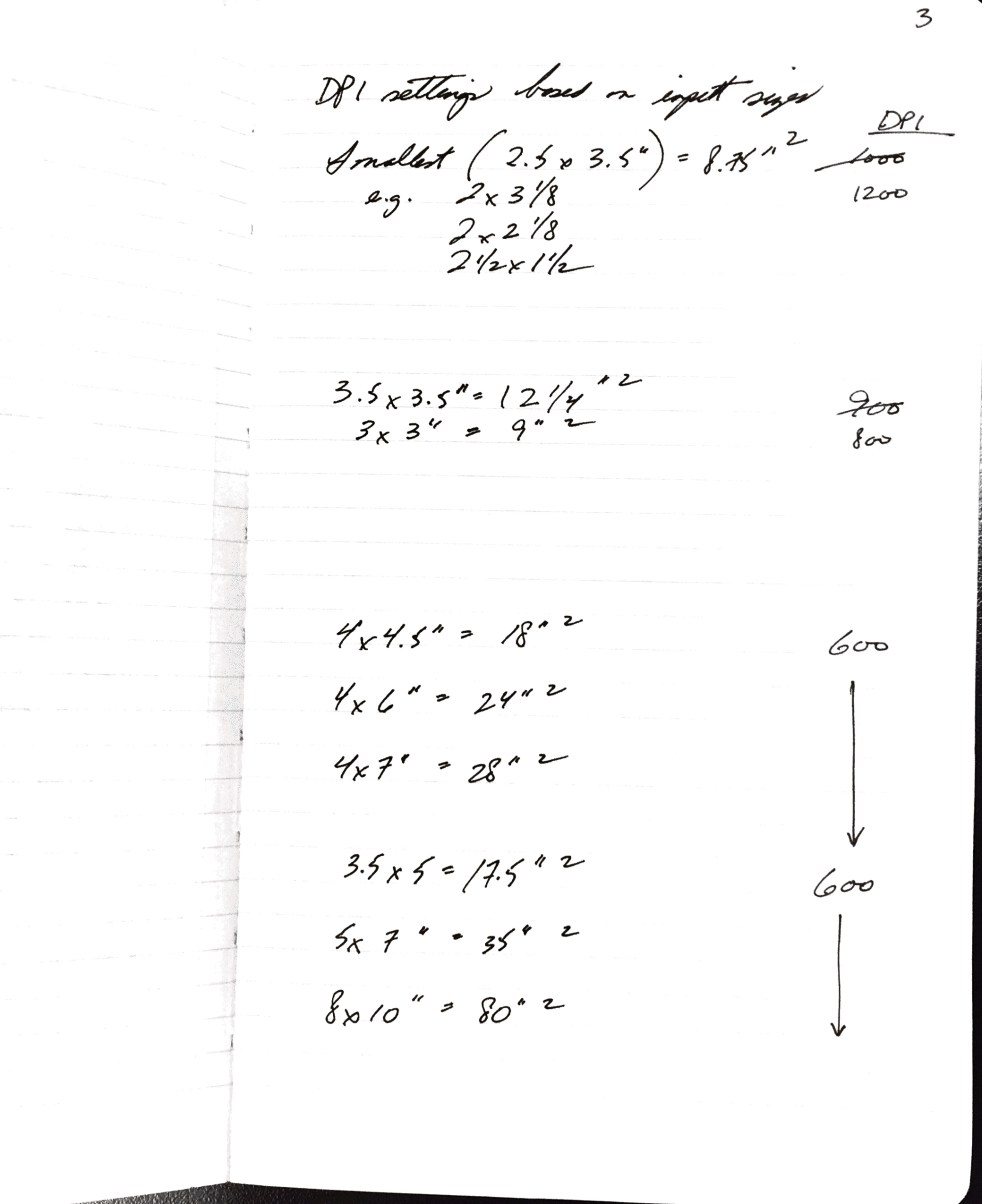 3
DPI settings based on input sizes
DPI
Smallest (2.5 x 3.5") = 8.75"² 1000
e.g. 2 x 3 1/8 1200
2 x 2 1/8
2 1/2 x 1 1/2
3.5 x 3.5" = 12 1/4"² 900
3 x 3" = 9"² 800
4 x 4.5" = 18"² 600
4 x 6" = 24"²
4 x 7" = 28"²
3.5 x 5 = 17.5"² 600
5 x 7" = 35"²
8 x 10" = 80"²